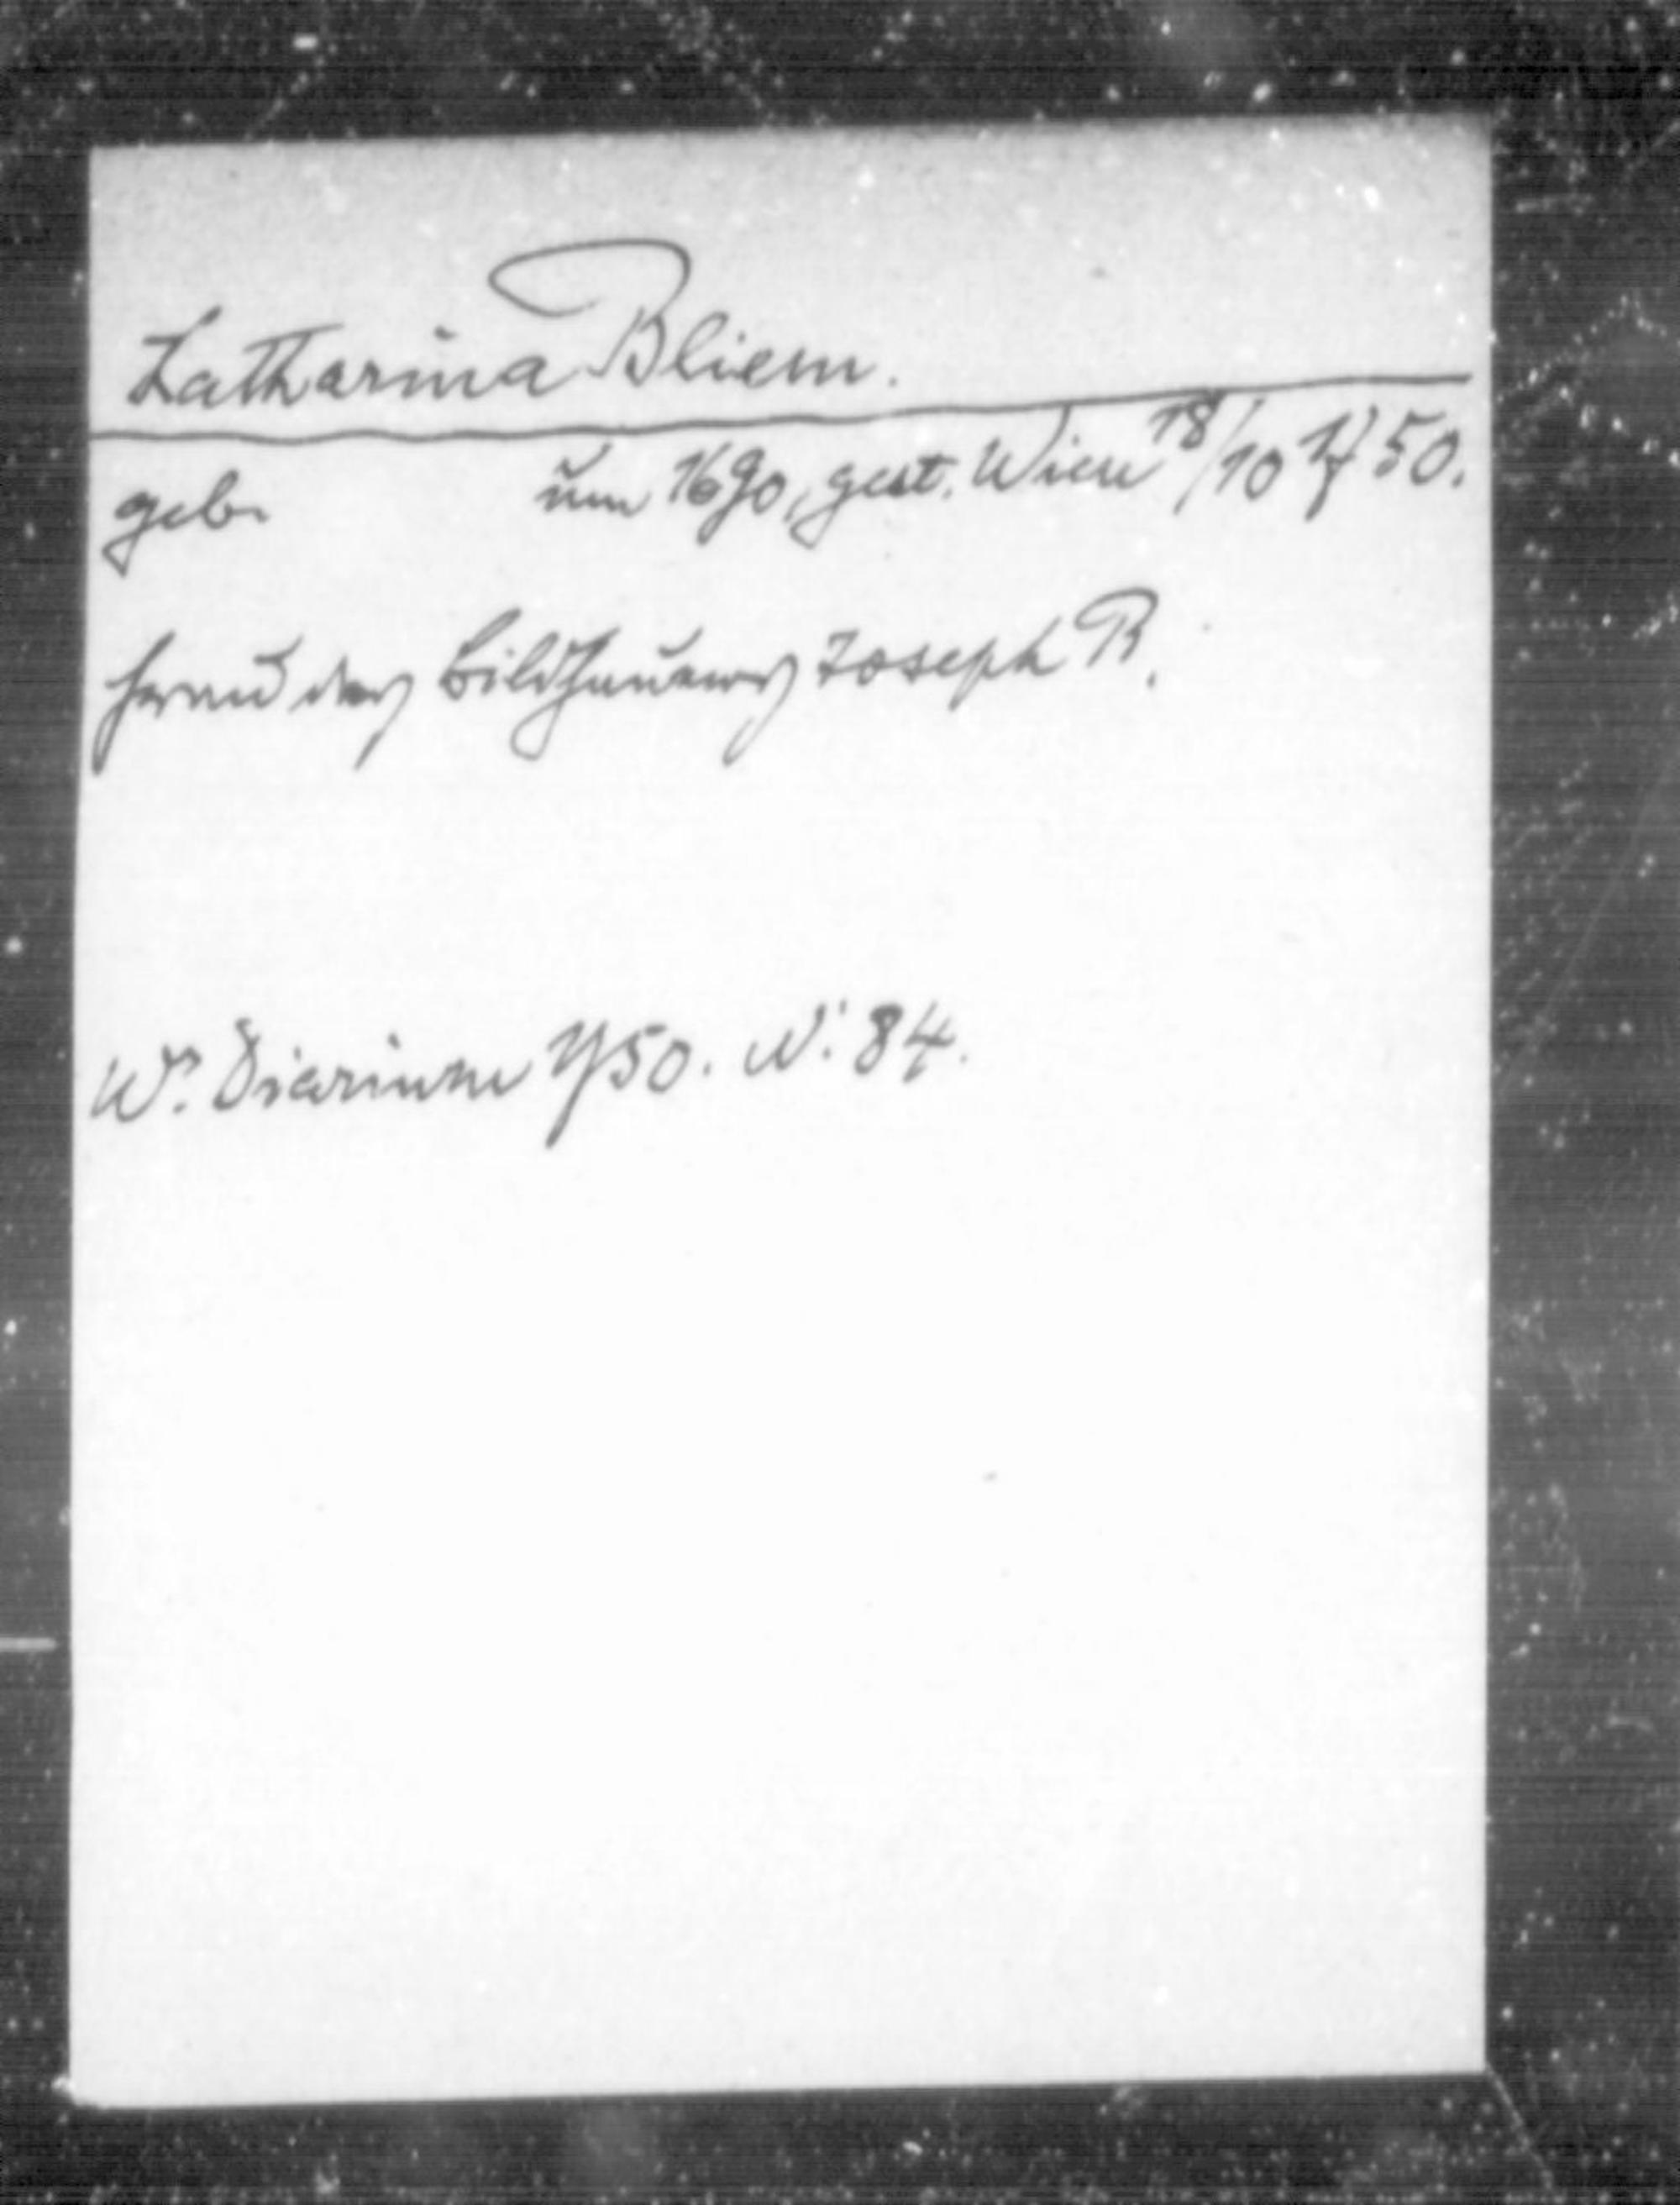 Katharina Bliem.
geb. um 1690, gest. Wien 18/10 1750.
Frau des Bildhauers Joseph B.
Wr. Diarium 1750. N: 84.